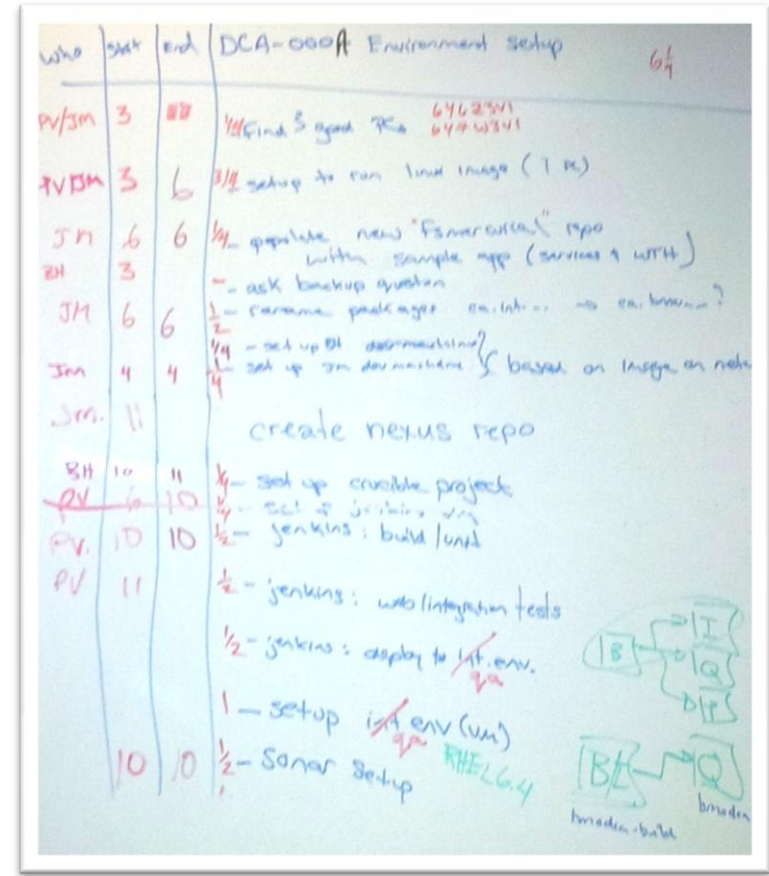 who start End DCA-000A Environment setup 6 1/4
PV/Jm 3 1/4 Find 3 good PCs
PV/Jm 3 6 3/4 setup to run linux image (1 PC)
Jm 6 6 1/4 - populate new repo
with sample app (services + WTH)
BH 3 - ask backup question
JM 6 6 1/2 - rename packages
1/4 - set up BH dev machine
Jm 4 4 1/4 - set up Jm dev machine } based on image on
Jm. 11 create nexus repo
BH 10 11 1/4 - set up crucible project
PV 6 10 1/4 - set up jenkins vm
PV. 10 10 1/2 - jenkins: build/unit
PV 11 1/2 - jenkins: web/integration tests
1/2 - jenkins: deploy to int. env.
qa
1 - setup int env (vm)
qa
RHEL6.4
10 10 1/2 - Sonar Setup
B I
Q
P
B Q
build